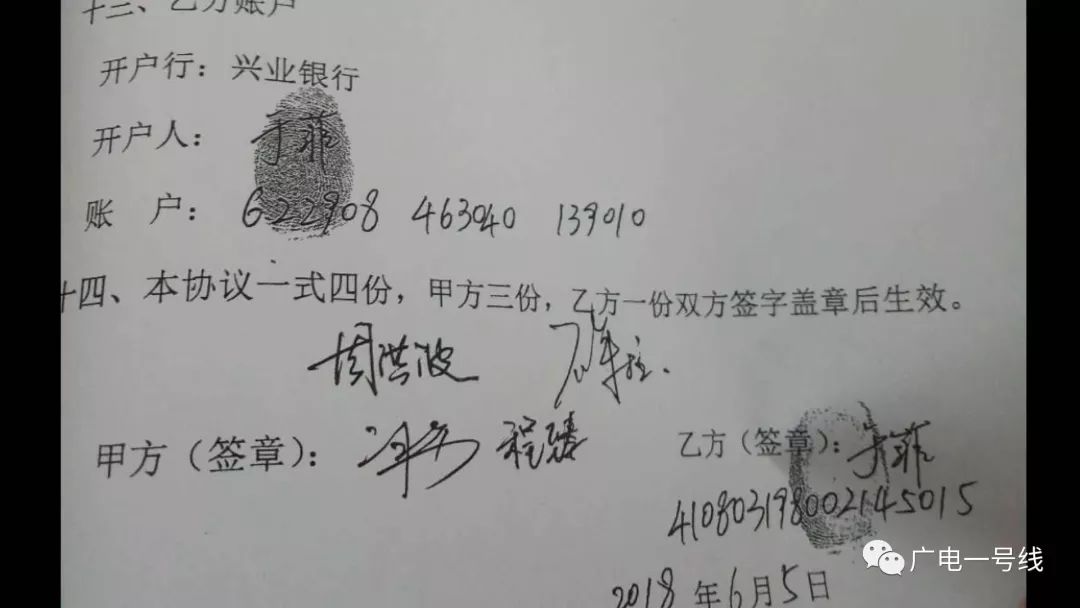 十三、乙方账户
开户行：兴业银行
开户人：于菲
账 户：622908 463040 139010
十四、本协议一式四份，甲方三份，乙方一份双方签字盖章后生效。
周洪波
甲方（签章）： 程
乙方（签章）：于菲
410803198002145015
2018年6月5日
广电一号线